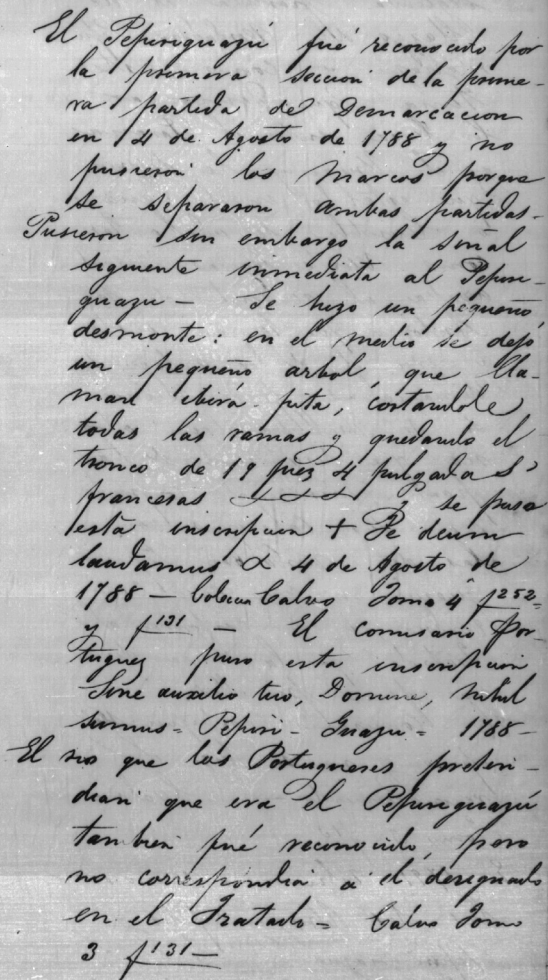 El Pepiriguazú fué reconocido por
la primera seccion de la prime-
ra partida de Demarcacion
en 4 de Agosto de 1788 y no
pusieron los Marcos porque
se separaron ambas partidas.
Pusieron sin embargo la señal
siguiente inmediata al Pepiri-
guazu - Se hizo un pequeño
desmonte: en el medio se dejó
un pequeño arbol, que lla-
man ibirá-pita, cortandole
todas las ramas y quedando el
tronco de 19 piez 4 pulgadas
francesas y se puso
esta inscripcion + Te deum
laudamus α 4 de Agosto de
1788 - Coleccion Calvo Tomo 4 f 252=
y f 131 - El comisario Por-
tuguez puso esta inscripcion
Sine auxilio tuo, Domine, nihil
sumus = Pepiri - Guazu = 1788 -
El rio que los Portugueses preten-
dian que era el Pepiriguazú
tambien fué reconocido, pero
no correspondia a el designado
en el Tratado = Calvo Tomo
3 f 131 -